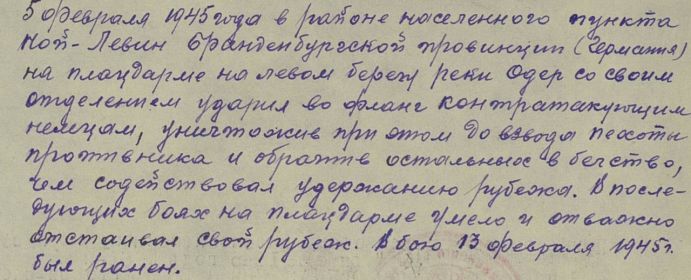 5 февраля 1945 года в районе населенного пункта
Ной-Левин Бранденбургской провинции (Германия)
на плацдарме на левом берегу реки Одер со своим
отделением ударил во фланг контратакующим
немцам, уничтожив при этом до взвода пехоты
противника и обратив остальных в бегство,
чем содействовал удержанию рубежа. В после-
дующих боях на плацдарме умело и отважно
отстаивал свой рубеж. В бою 13 февраля 1945 г.
был ранен.